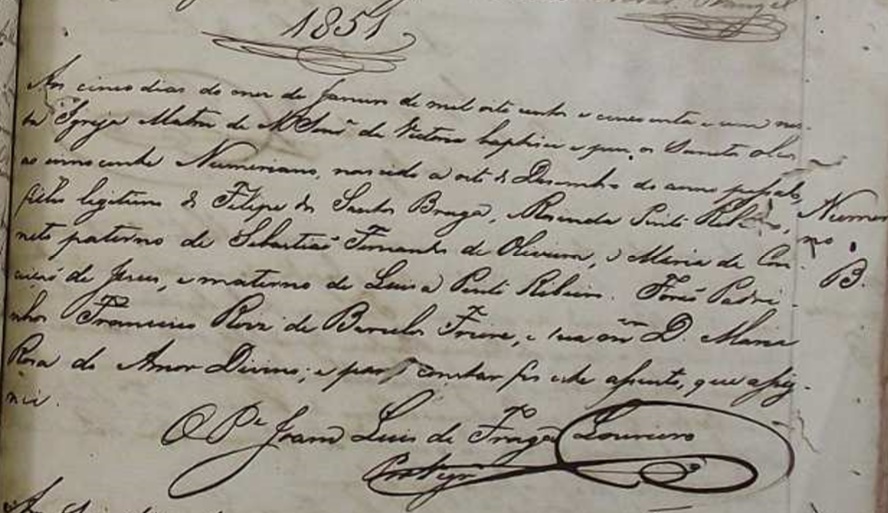 1851
Aos cinco dias do mez de Janeiro de mil oito centos e cincoenta e um nes-
ta Igreja Matriz de N. Senrª da Victoria baptisei e puz os Santos oleos
ao innocente Numeriano, nascido a oito de Desembro do anno passado,
filho legitimo de Filipe dos Santos Braga, Rosenda Pinto Ribeiro,
neto paterno de Sebastião Fernandes de Oliveira, e Maria da Con-
ceição de Jesus, e materno de Luisa Pinto Ribeiro. Forão Padri-
nhos Francisco Roiz de Barcelos Freire, e sua mer D. Maria
Rosa do Amor Divino; e para constar fis este assento, que assig-
nei.
O Pe João Luis de Fraga Loureiro
Numeria
no.
B.